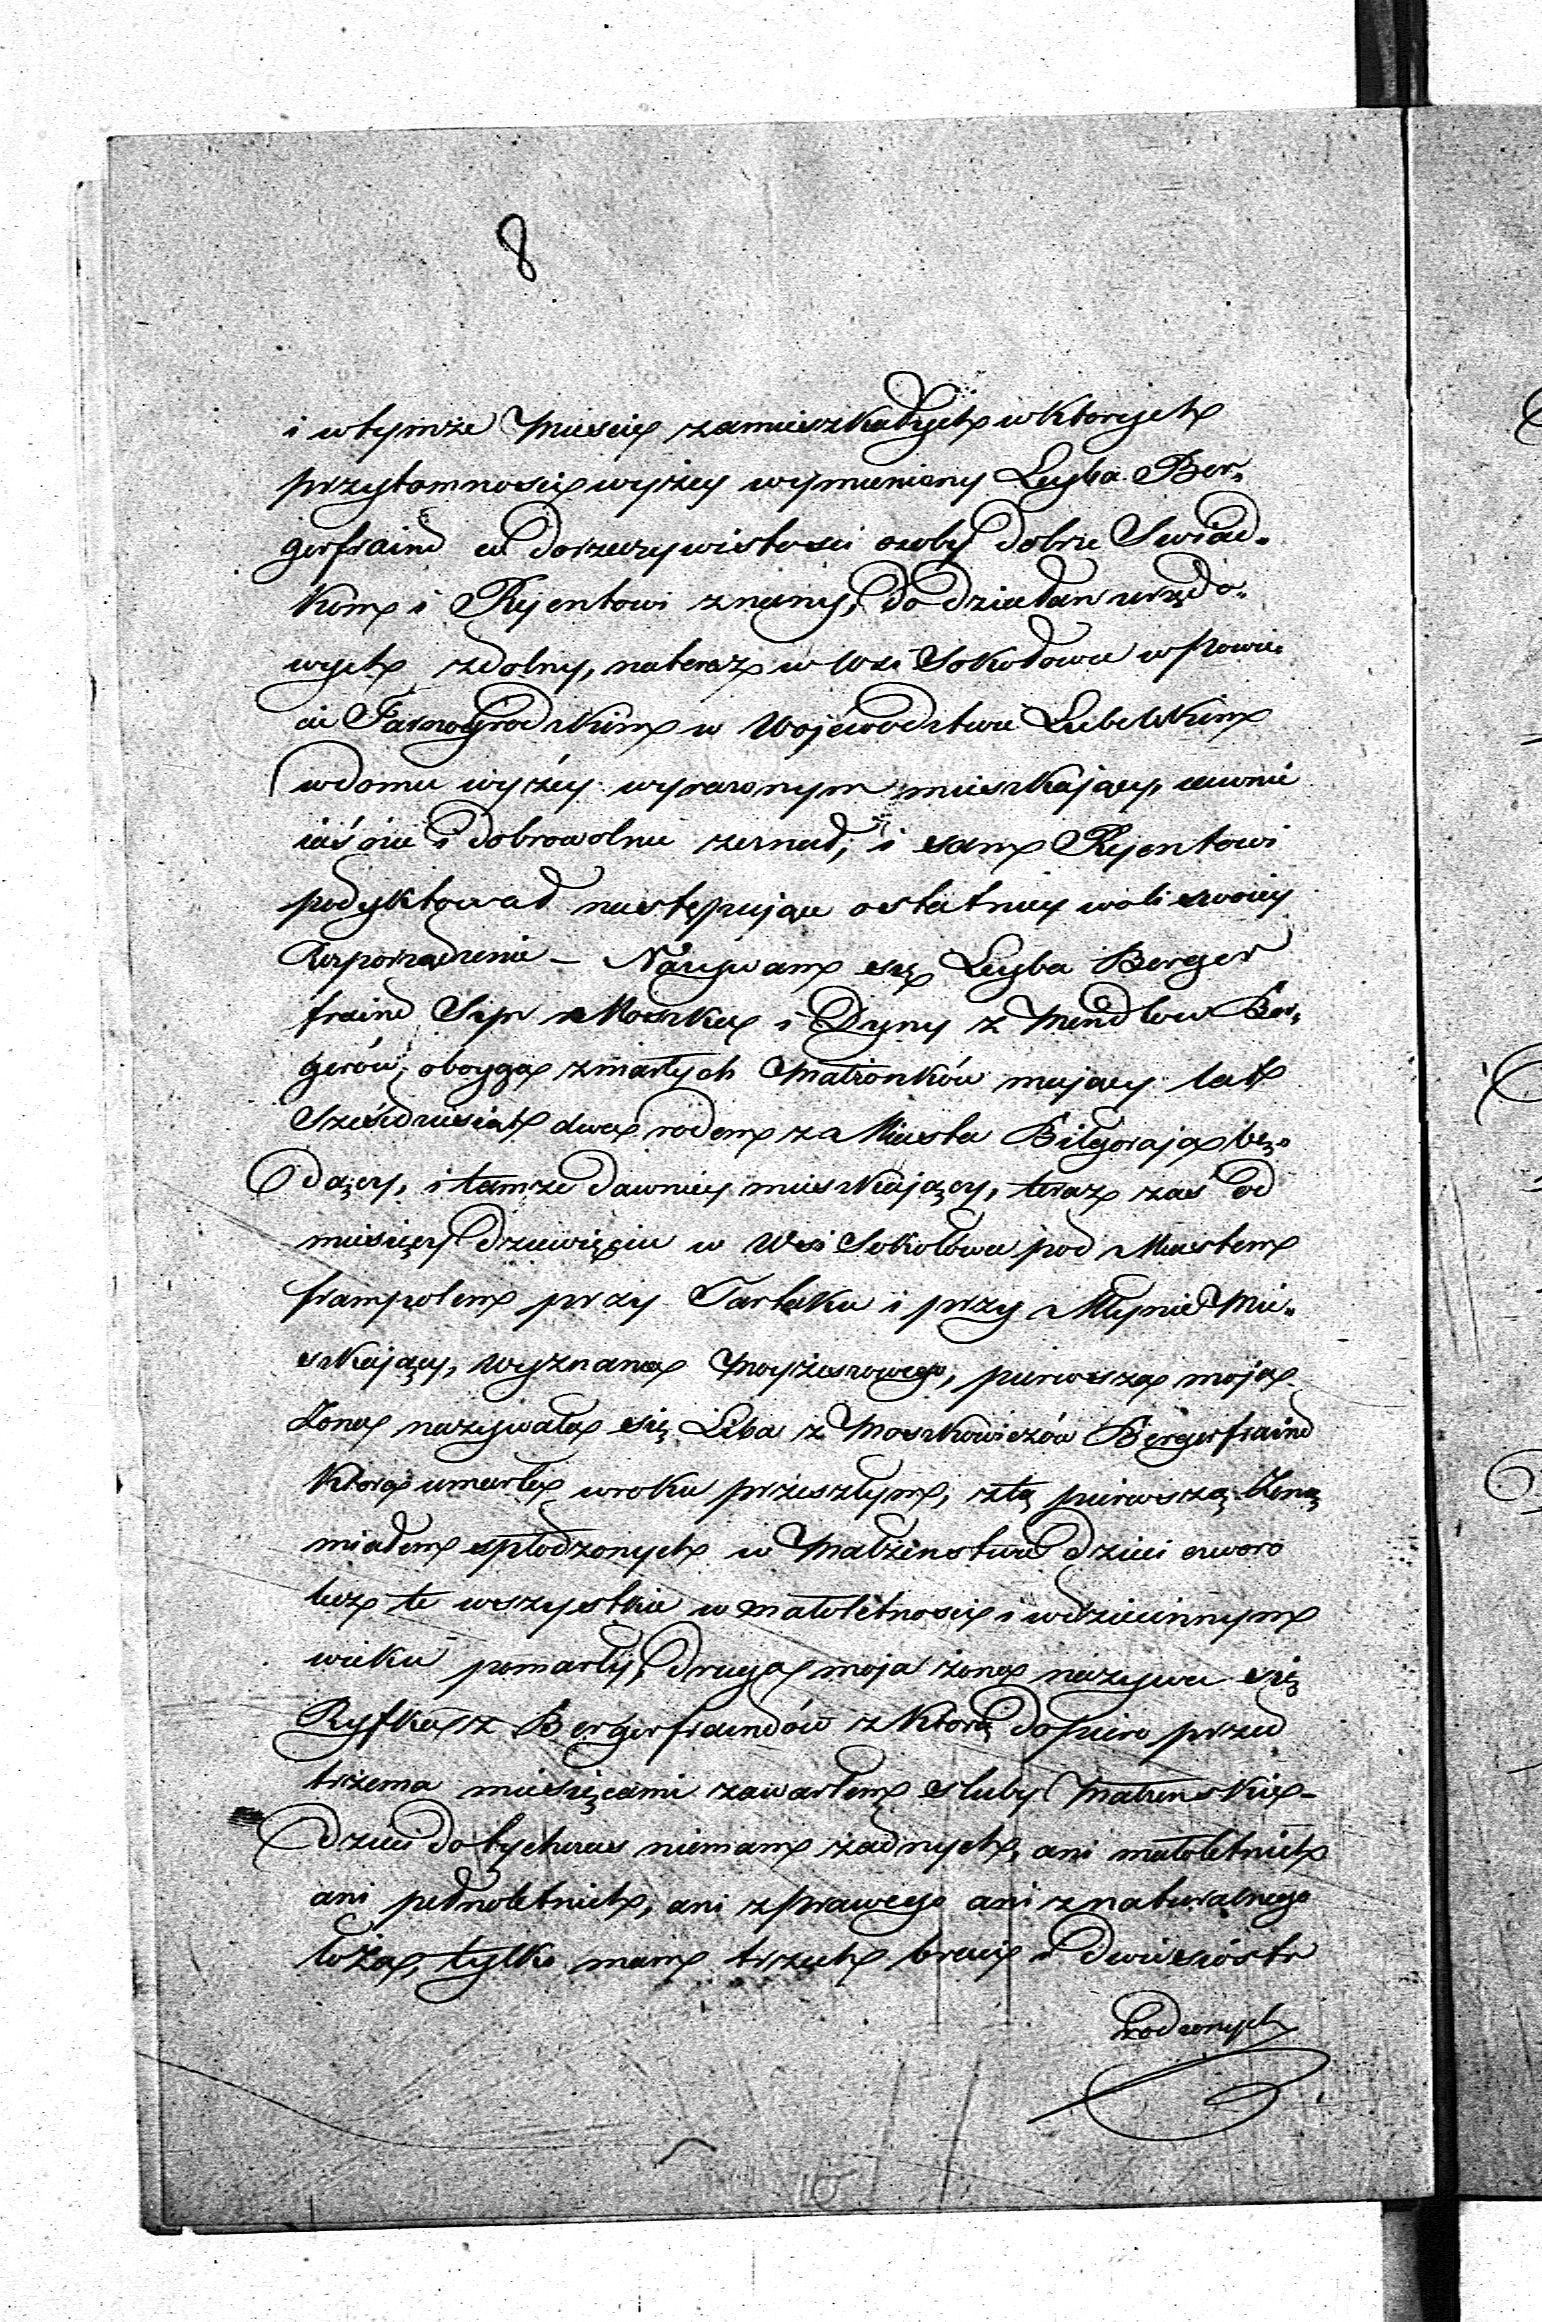 8
i w tymże Mieście zamieszkałych w ktorych
przytomności wyżey wymieniony Leyba Ber„
gerfraind co do rzeczywistości osoby dobrze Swiad„
kom i Rejentowi znany, do działan urzędo„
wych zdolny, na teraz w Wsi Sokołowce w Powie„
cie Tarnogrodzkim w Wojewodztwie Lubelskim
w domu wyżey wyrażonym mieszkający, umie
iaśnie i dobrowolnie zeznał, i sam Rejentowi
podyktował następujące ostatniey woli swoiey
Rozporządzenie – Nazywam się Leyba Berger
fraind Syn Moszka i Dyny z Mendlow Ber„
gerów, oboyga zmarłych Małżonków mający lat
Sześćdziesiąt dwa rodem z Miasta Biłgoraja bę„
dący, i tamże dawniey mieszkający, teraz zaś od
miesięcy dziewięciu w Wsi Sokołowce pod Miastem
Frampolem przy Tartaku i przy Młynie Mie„
szkający, wyznania Moyżeszowego, pierwsza moja
Żona nazywała się Liba z Moszkowiczów Bergerfraind
Która umarła w roku przeszłym, z tą pierwszą Żoną
miałem spłodzonych w Małżeństwie dzieci czworo
lecz te wszystkie w małoletności i w dziecinnym
wieku pomarły, druga moja żona nazywa się
Ryfka z Bergerfraindów z którą dopiero przed
trzema miesięcami zawarłem śluby Małżeńskie –
Dzieci dotychczas niemam żadnych, ani małoletnich
ani pełnoletnich, ani z prawego ani z naturalnego
łoża, tylko mam trzech braci i dwie siostr
rodzonych